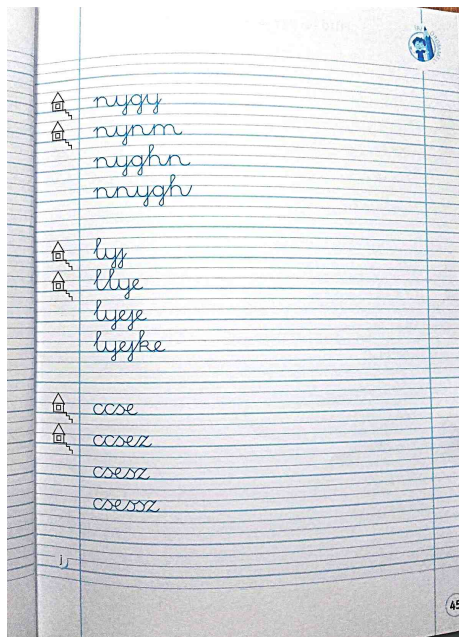 nygy
nynm
nyghn
nnygh
lyj
llye
lyeje
lyejke
ccse
ccsez
csesz
csessz
j
45